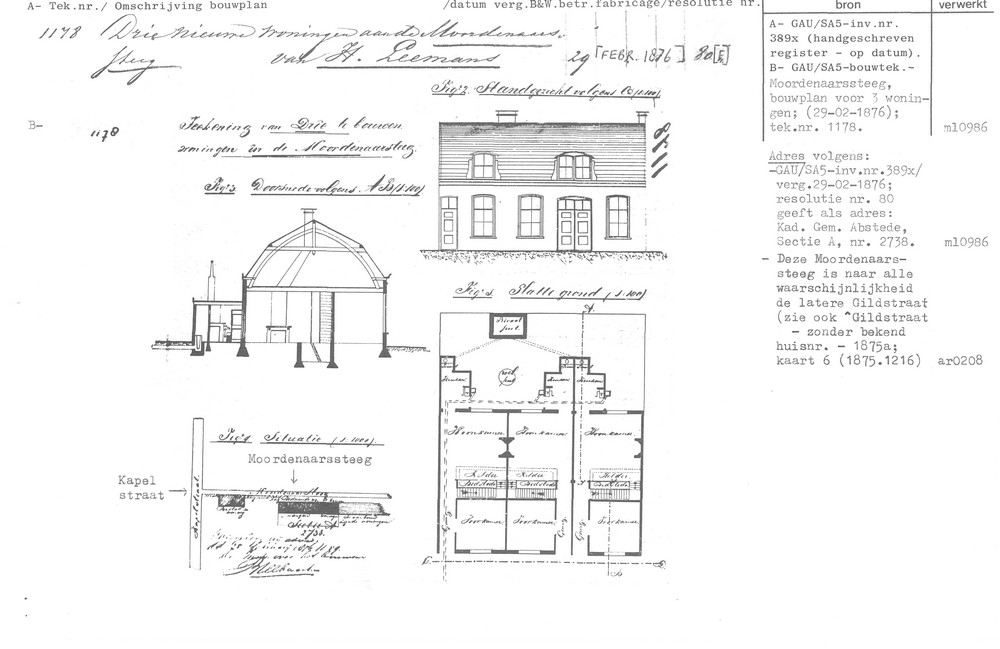 A- Tek.nr./ Omschrijving bouwplan
/datum verg.B&W.betr.fabricage/resolutie nr.
bron
verwerkt
1178 Drie nieuwe woningen aan de Moordenaars-
steeg van H. Leemans 29 [FEBR. 1876] 80 [E]
A- GAU/SA5-inv.nr.
389x (handgeschreven
register - op datum).
B- GAU/SA5-bouwtek.-
Moordenaarssteeg,
bouwplan voor 3 wonin-
gen; (29-02-1876);
tek.nr. 1178. ml0986
Adres volgens:
-GAU/SA5-inv.nr.389x/
verg.29-02-1876;
resolutie nr. 80
geeft als adres:
Kad. Gem. Abstede,
Sectie A, nr. 2738. ml0986
- Deze Moordenaars-
steeg is naar alle
waarschijnlijkheid
de latere Gildstraat
(zie ook ^Gildstraat
- zonder bekend
huisnr. - 1875a;
kaart 6 (1875.1216) ar0208
B- 1178
Teekening van Drie te bouwen
woningen in de Moordenaarsteeg.
Fig. 2. Standgezicht volgens C (1:100)
1178
Fig. 3. Doorsnede volgens A B (1:100)
Fig. 1. Platte grond (1:100)
A
Keuken
Keuken
Keuken
Woonkamer
Woonkamer
Woonkamer
Kelder
Kelder
Kelder
Bedstede
Bedstede
Bedstede
Voorkamer
Voorkamer
Voorkamer
Gang
Gang
Gang
C
B
Fig. 4 Situatie (1:1000)
Moordenaarssteeg
Kapel
straat
Kapelstraat
Moordenaar Steeg
Sectie A
2738.